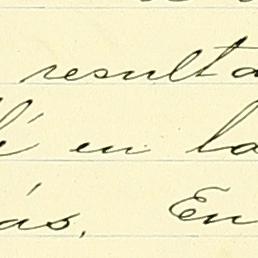 resulta
é en la
ás. En